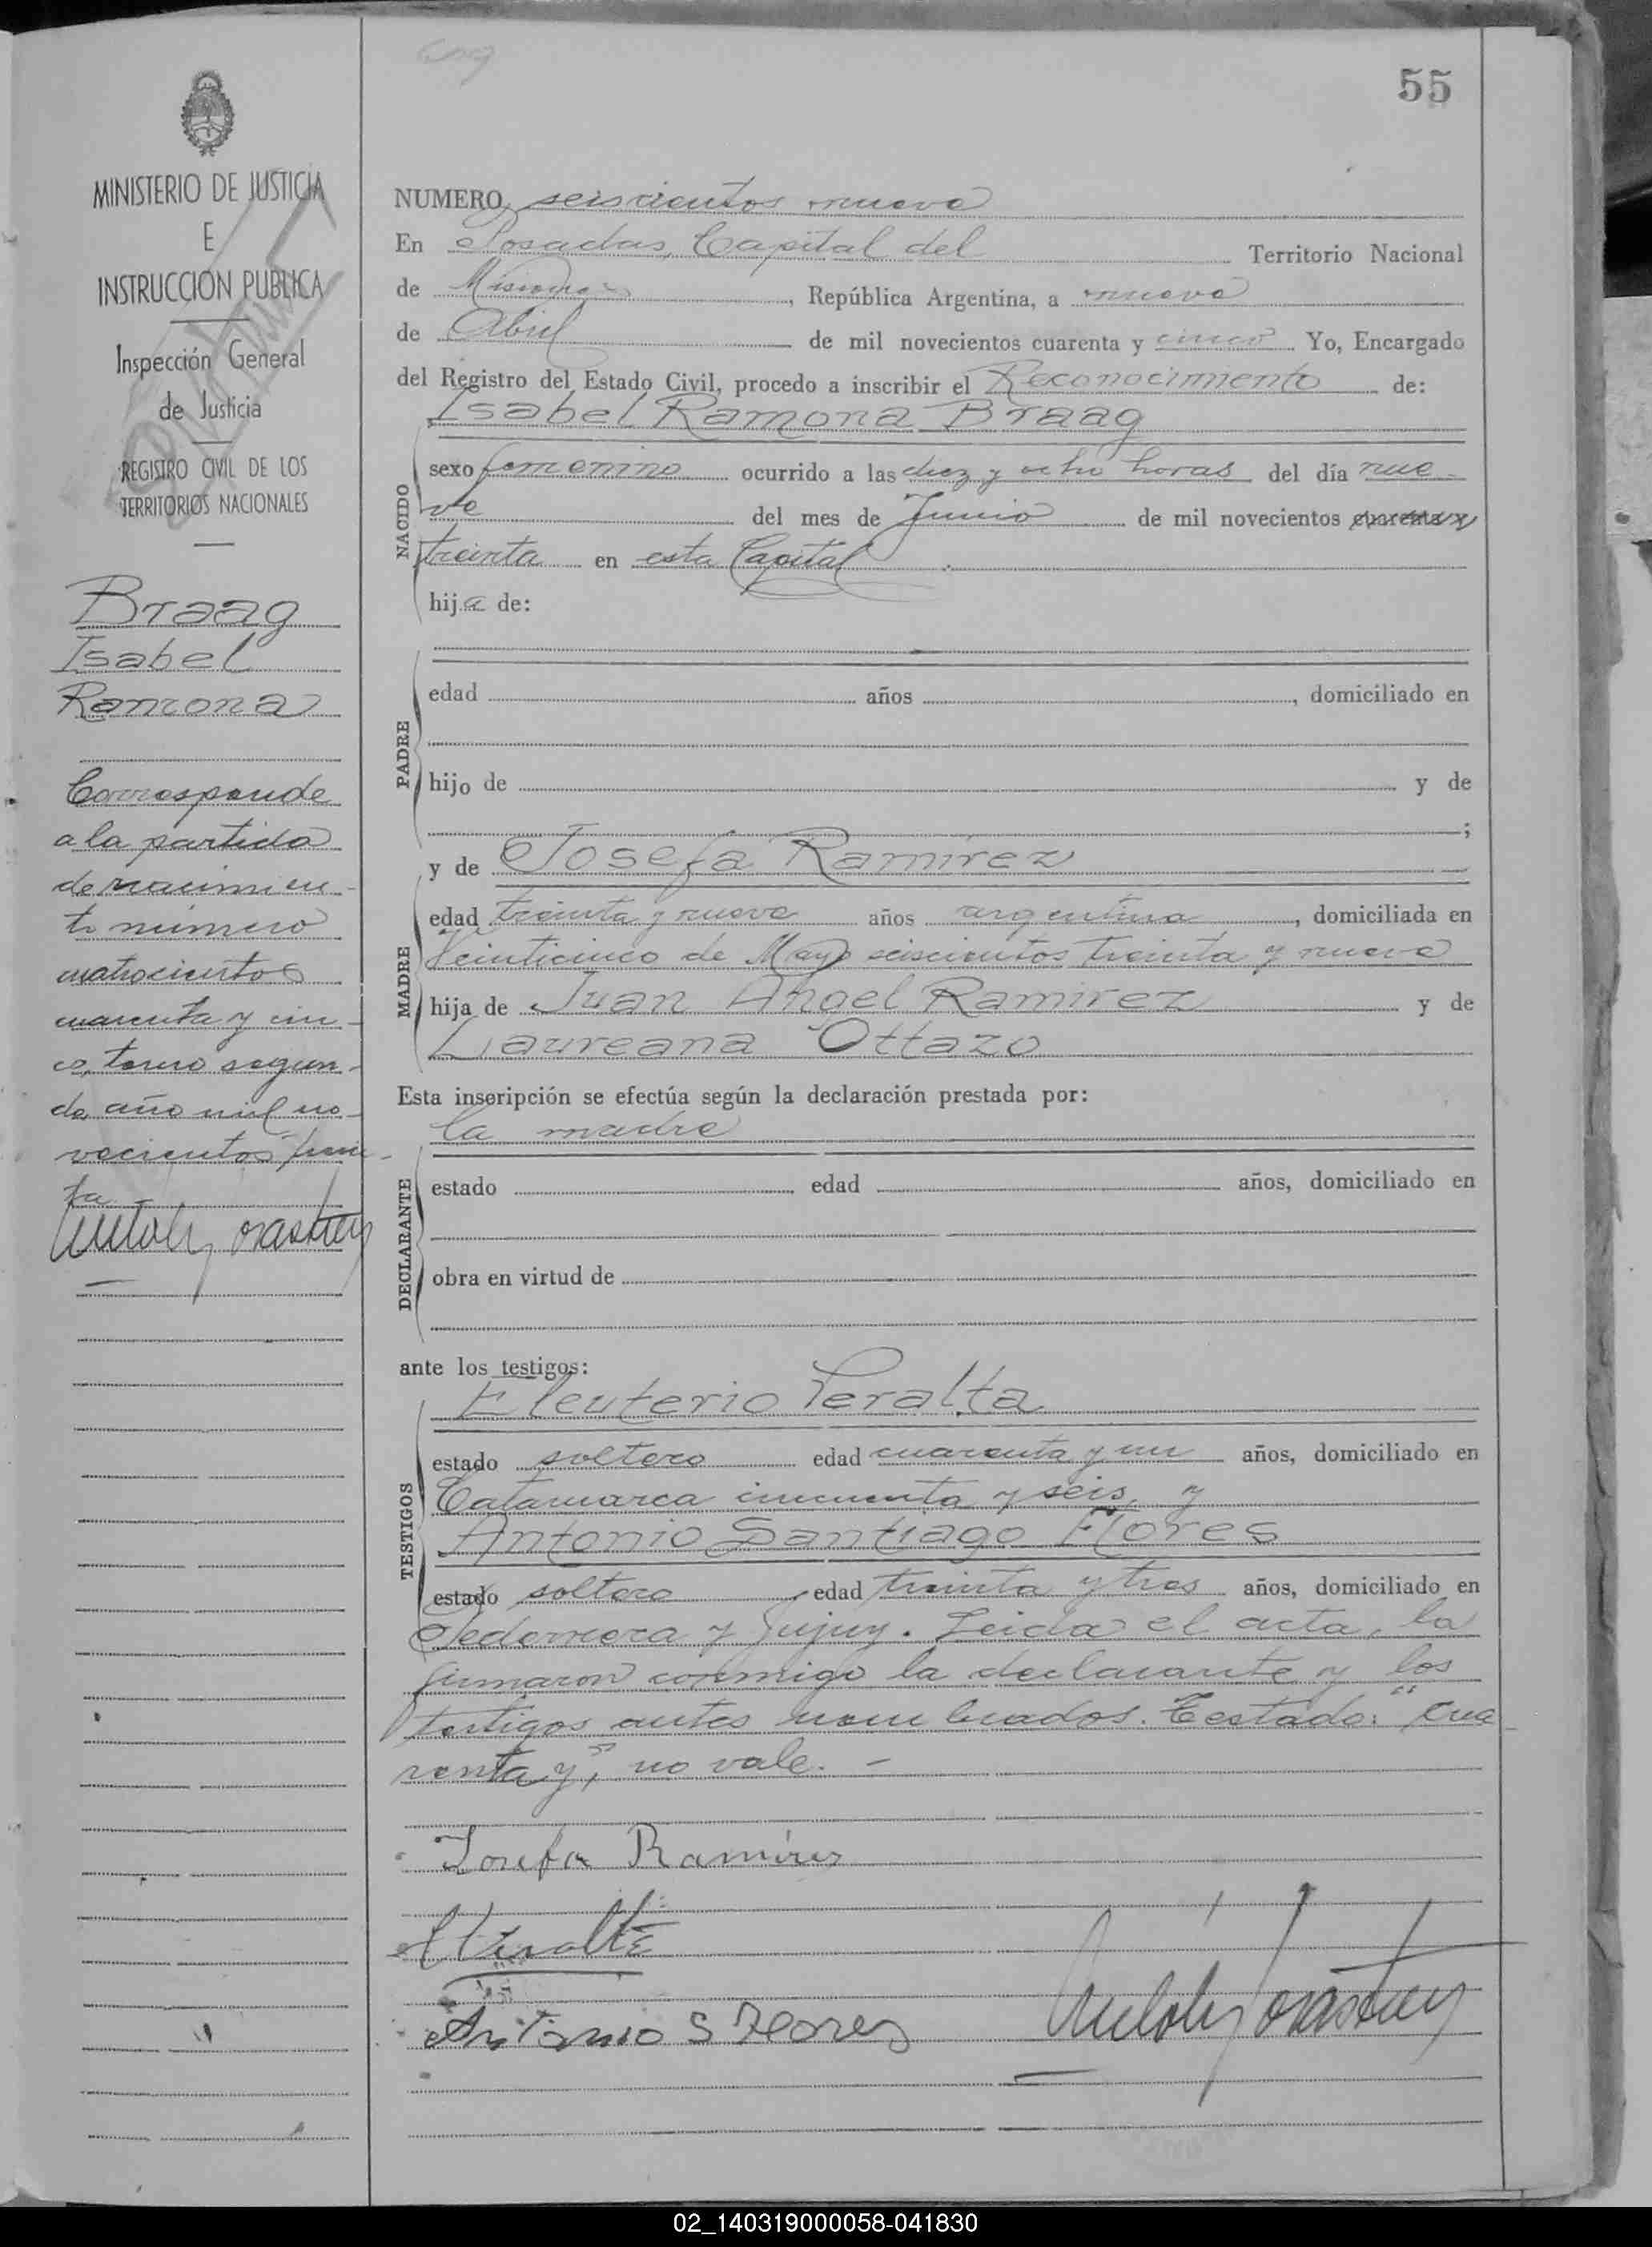 55
MINISTERIO DE JUSTICIA
E
INSTRUCCION PUBLICA
Inspección General
de Justicia
REGISTRO CIVIL DE LOS
TERRITORIOS NACIONALES
Braag
Isabel
Ramona
Corresponde
a la partida
de nacimien-
to número
cuatrocientos
cuarenta y cin-
co, tomo segun-
do año mil no-
vecientos trein-
ta
NUMERO seiscientos nueve
En Posadas, Capital del Territorio Nacional
de Misiones, República Argentina, a nueve
de Abril de mil novecientos cuarenta y cinco Yo, Encargado
del Registro del Estado Civil, procedo a inscribir el Reconocimiento de:
Isabel Ramona Braag
NACIDO
sexo femenino ocurrido a las diez y ocho horas del día nue-
ve del mes de Junio de mil novecientos cuarenta y
treinta en esta Capital
hija de:
PADRE
edad años , domiciliado en
hijo de y de
;
MADRE
y de Josefa Ramirez
edad treinta y nueve años argentina, domiciliada en
Veinticinco de Mayo seiscientos treinta y nueve
hija de Juan Angel Ramirez y de
Laureana Ottazo
Esta inscripción se efectúa según la declaración prestada por:
la madre
DECLARANTE
estado edad años, domiciliado en
obra en virtud de
ante los testigos:
TESTIGOS
Eleuterio Peralta
estado soltero edad cuarenta y un años, domiciliado en
Catamarca cincuenta y seis, y
Antonio Santiago Flores
estado soltero edad treinta y tres años, domiciliado en
y Jujuy. Leida el acta, la
firmaron conmigo la declarante y los
testigos antes nombrados. Testado: "cua-
renta y", no vale. -
Josefa Ramires
Peralta
Antonio S Flores
02_140319000058-041830